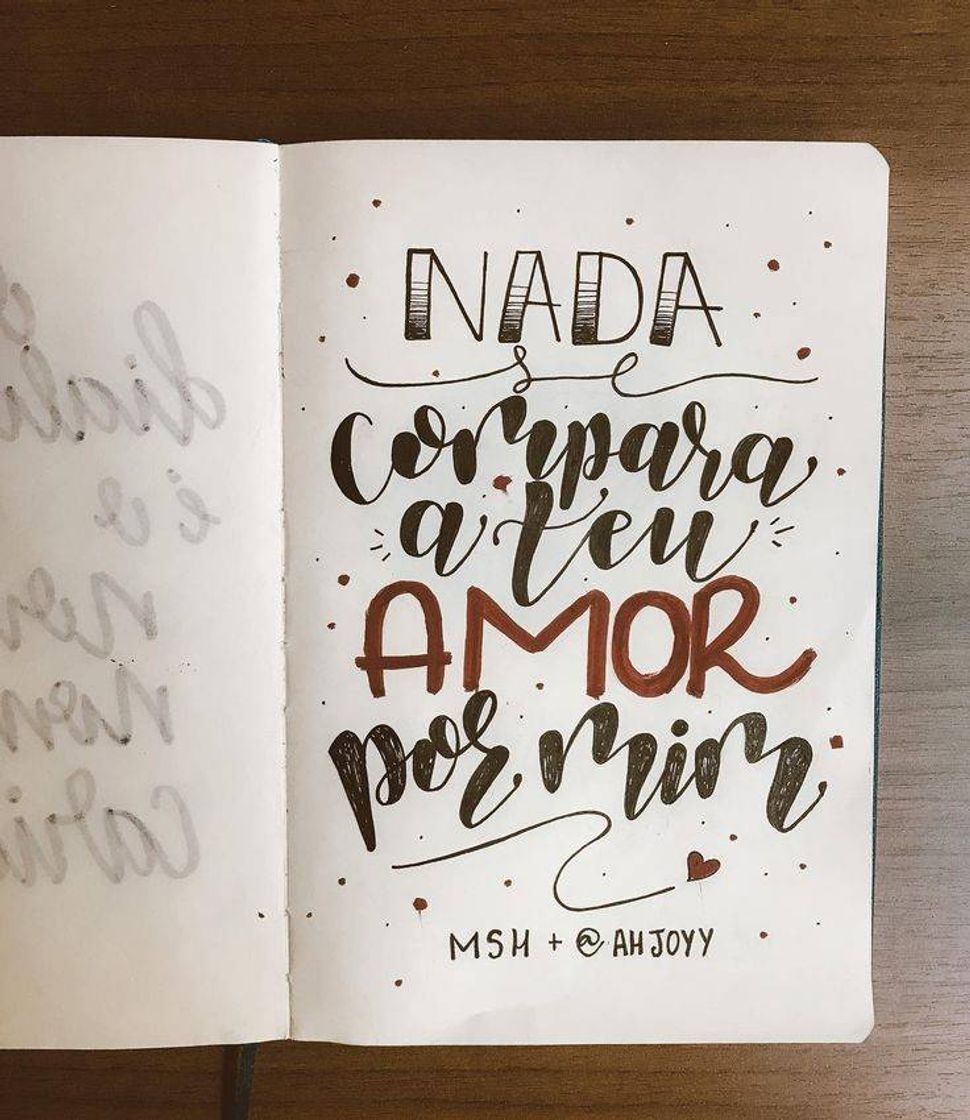 NADA
se
compara
a teu
AMOR
por mim
MSH + @AHJOYY